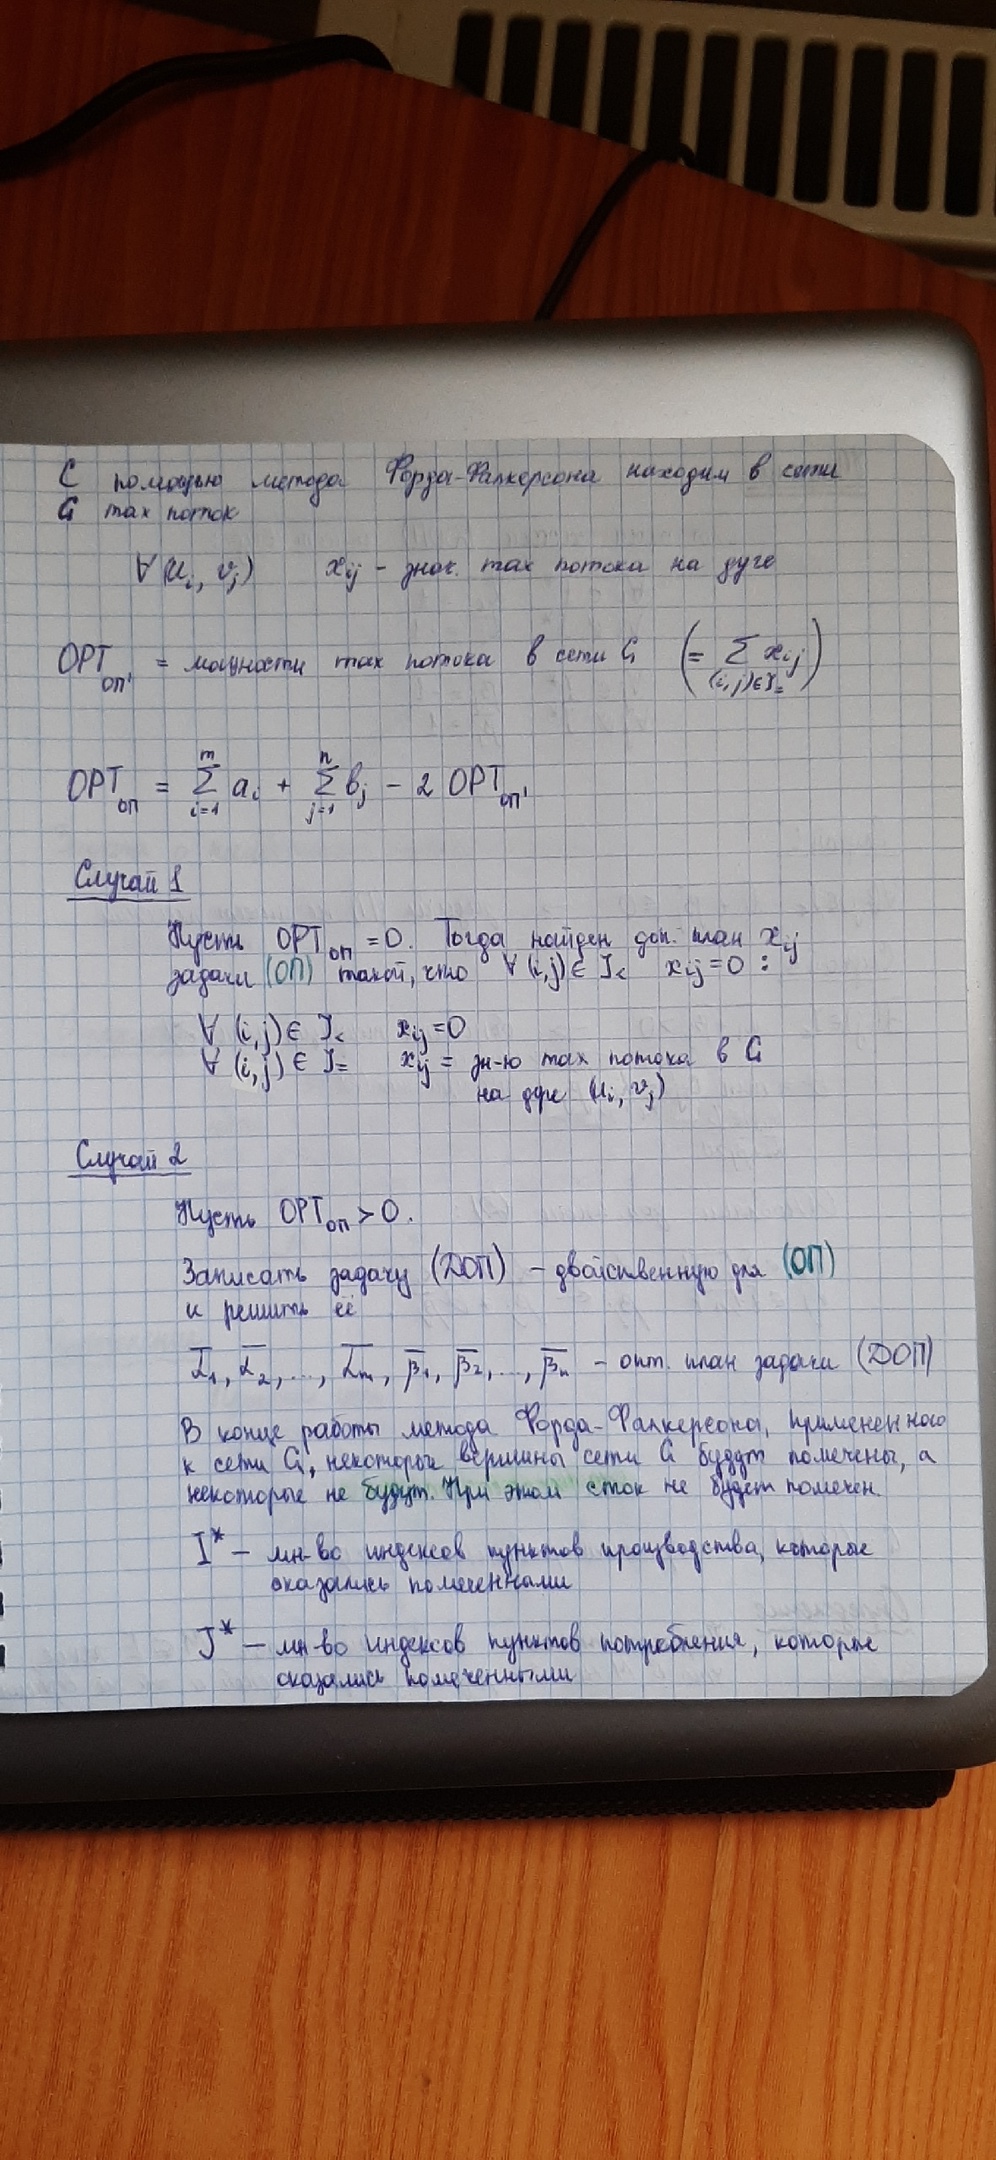 С помощью метода Форда-Фалкерсона находим в сети
G max поток
∀(u_i, v_j) x_ij - знач. max потока на дуге
OPT_ОП' = мощности max потока в сети G (= Σ_{(i,j)∈J_=} x_ij)
OPT_ОП = Σ_{i=1}^{m} a_i + Σ_{j=1}^{n} b_j - 2 OPT_ОП'
Случай 1
Пусть OPT_ОП = 0. Тогда найден доп. план x_ij
задачи (ОП) такой, что ∀ (i,j) ∈ J_< x_ij = 0 :
∀ (i,j) ∈ J_< x_ij = 0
∀ (i,j) ∈ J_= x_ij = зн-ю max потока в G
на дуге (u_i, v_j)
Случай 2
Пусть OPT_ОП > 0.
Записать задачу (ДОП) - двойственную для (ОП)
и решить её
α̅_1, α̅_2, ..., α̅_m, β̅_1, β̅_2, ..., β̅_n - опт. план задачи (ДОП)
В конце работы метода Форда-Фалкерсона, примененного
к сети G, некоторые вершины сети G будут помечены, а
некоторые не будут. При этом сток не будет помечен
I* - мн-во индексов пунктов производства, которые
оказались помеченными
J* - мн-во индексов пунктов потребления, которые
оказались помеченными